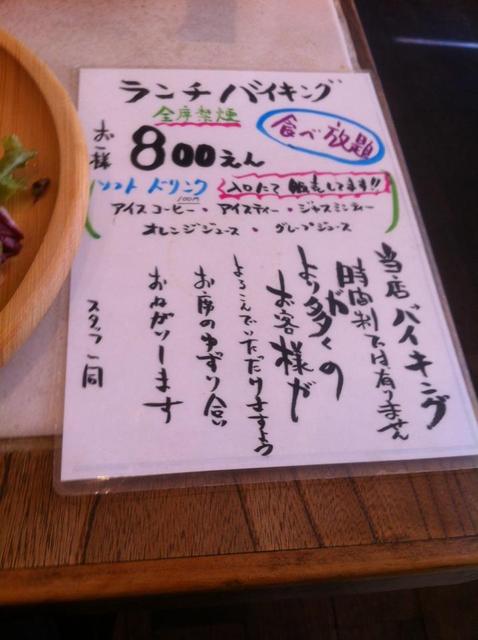 ランチバイキング
全席禁煙
食べ放題
お一人様
800えん
ソフトドリンク
100円
入口にて販売してます!!
アイスコーヒー・アイスティー・ジャスミンティー
オレンジジュース・グレープジュース
当店バイキング
時間制では有りません
より多くの
お客様が
よろこんでいただけますよう
お席のゆずり合い
おねがいします
スタッフ一同